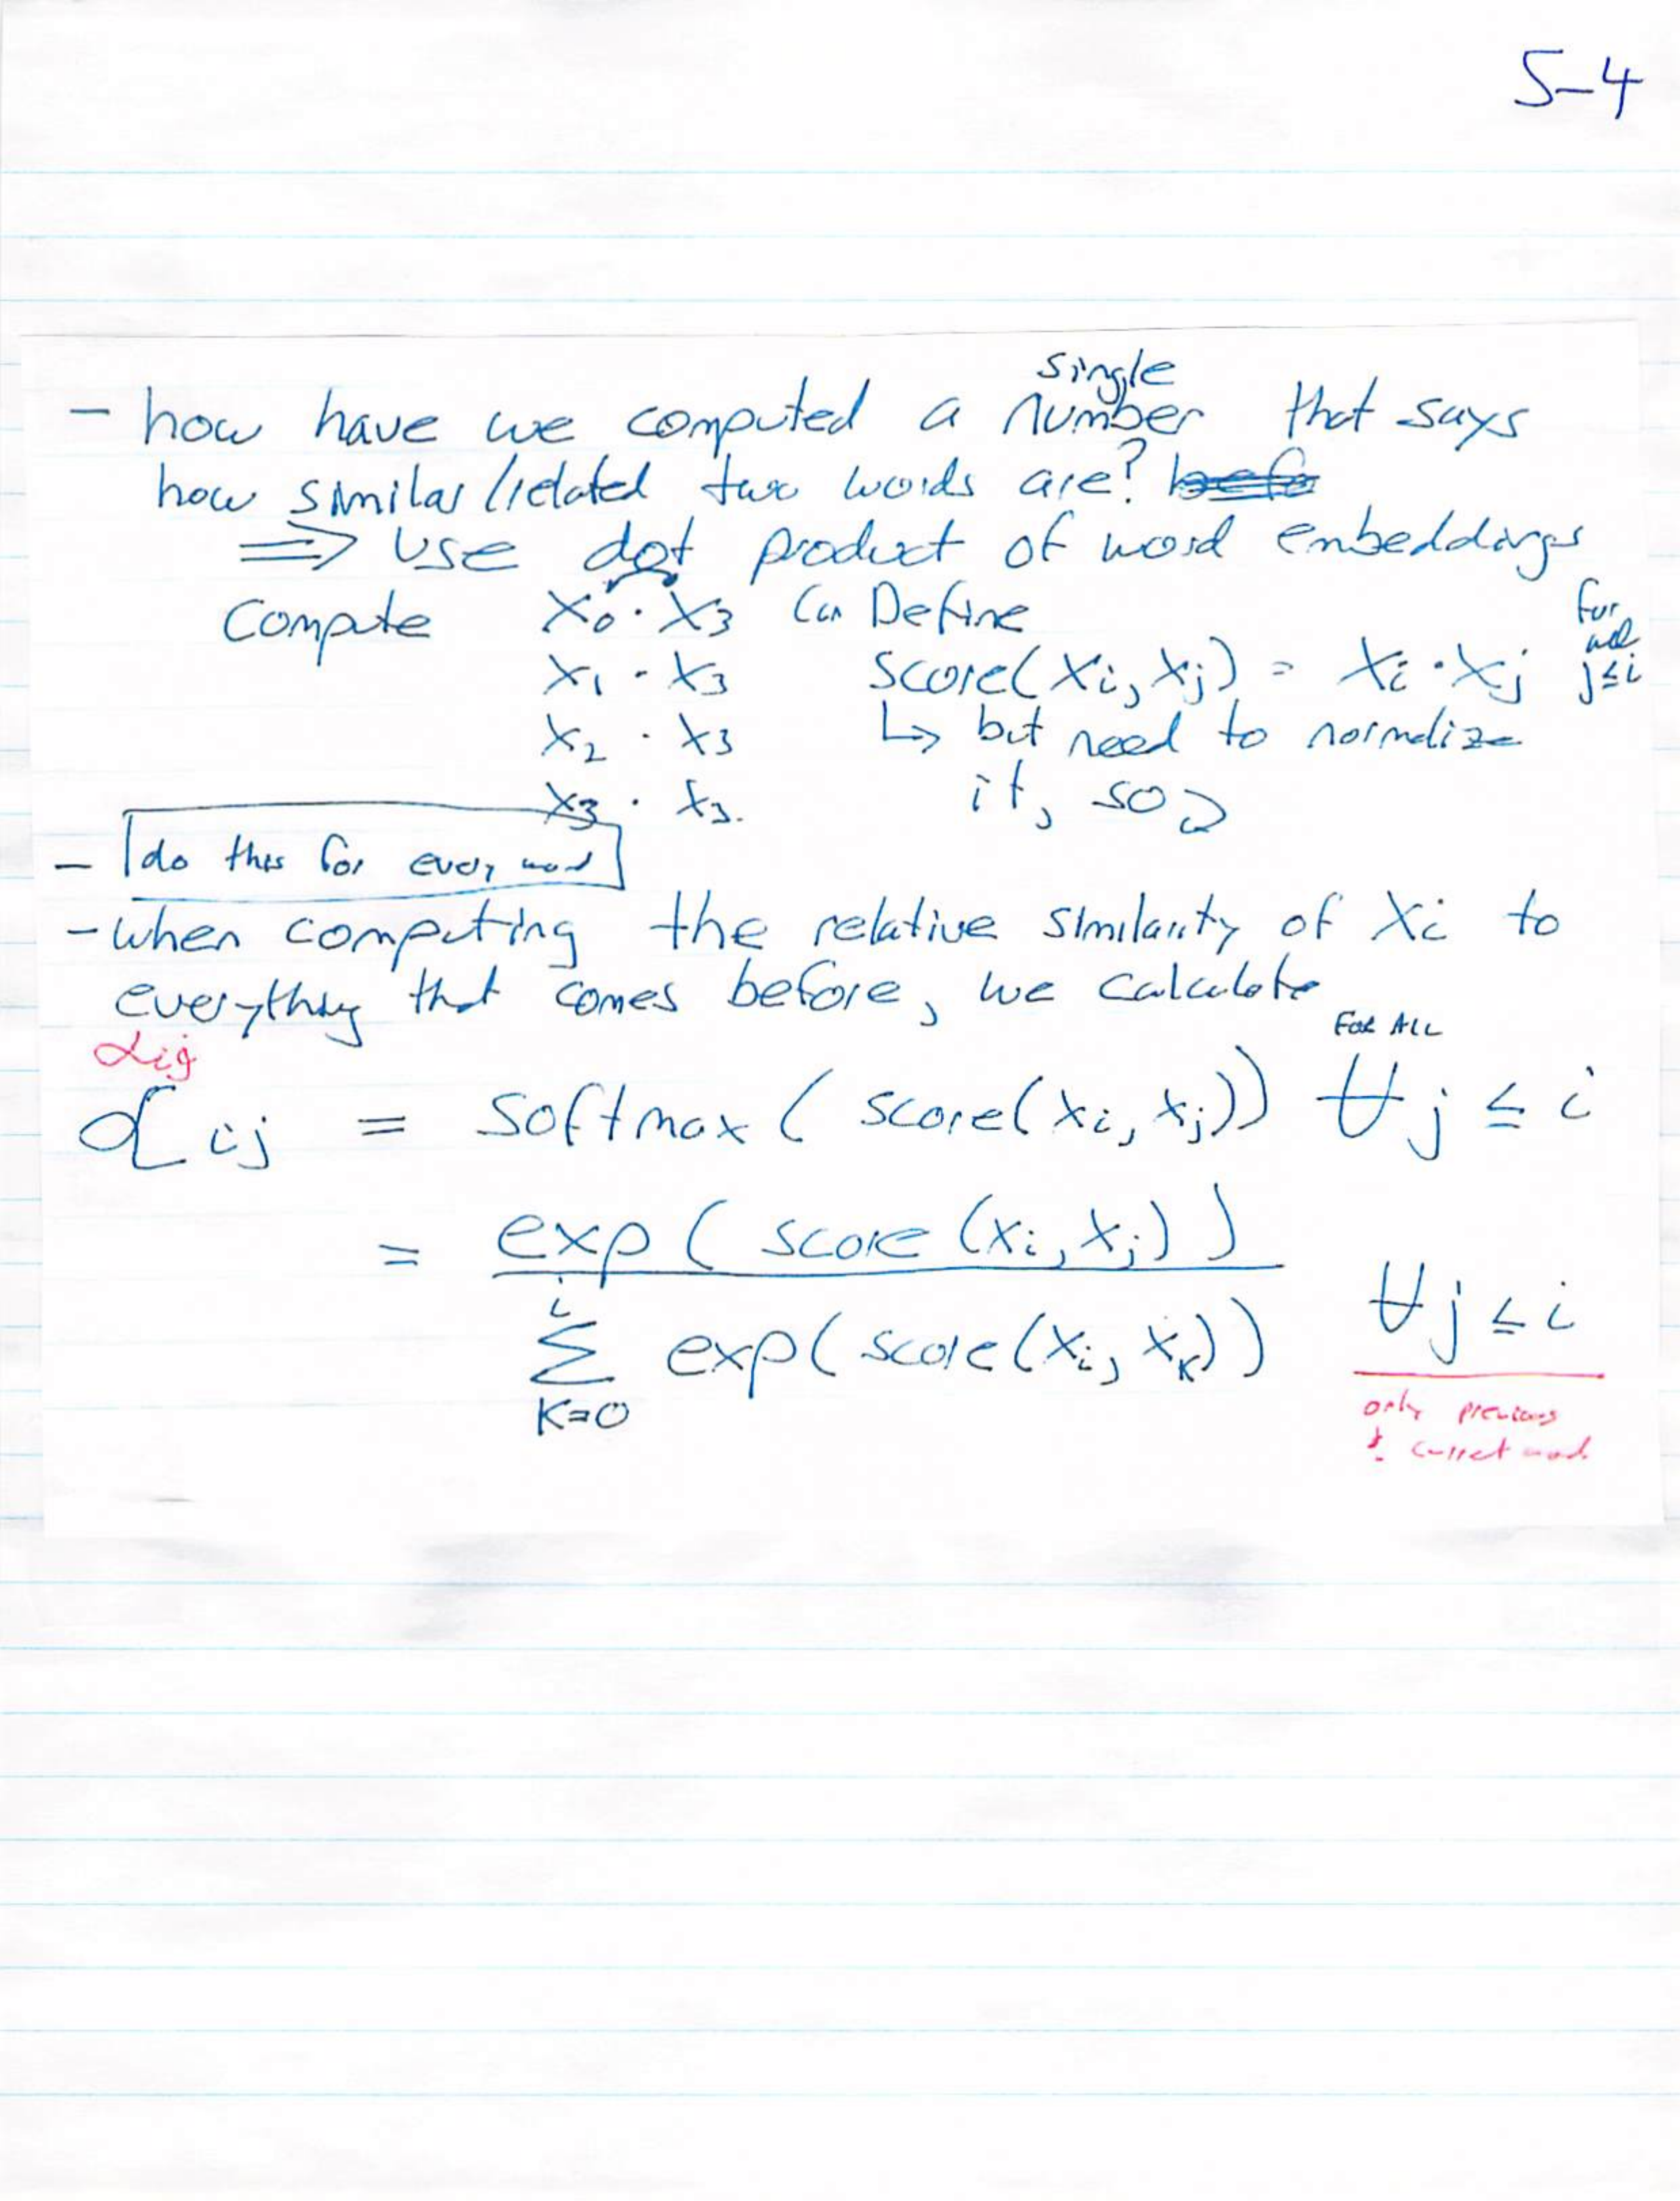 5-4
single
- how have we computed a number that says
how similar/related two words are?
⇒ Use dot product of word embeddings
Compute x₀ · x₃ Can Define
for all j ≤ i
x₁ · x₃ score(xᵢ, xⱼ) = xᵢ · xⱼ
x₂ · x₃ ↳ but need to normalize
x₃ · x₃. it, so
- do this for every word
- when computing the relative similarity of xᵢ to
everything that comes before, we calculate
αij
FOR ALL
αij = softmax( score(xᵢ, xⱼ)) ∀ j ≤ i
= exp( score(xᵢ, xⱼ) )
i
Σ exp( score(xᵢ, xₖ)) ∀ j ≤ i
K=0
only previous
& current word.